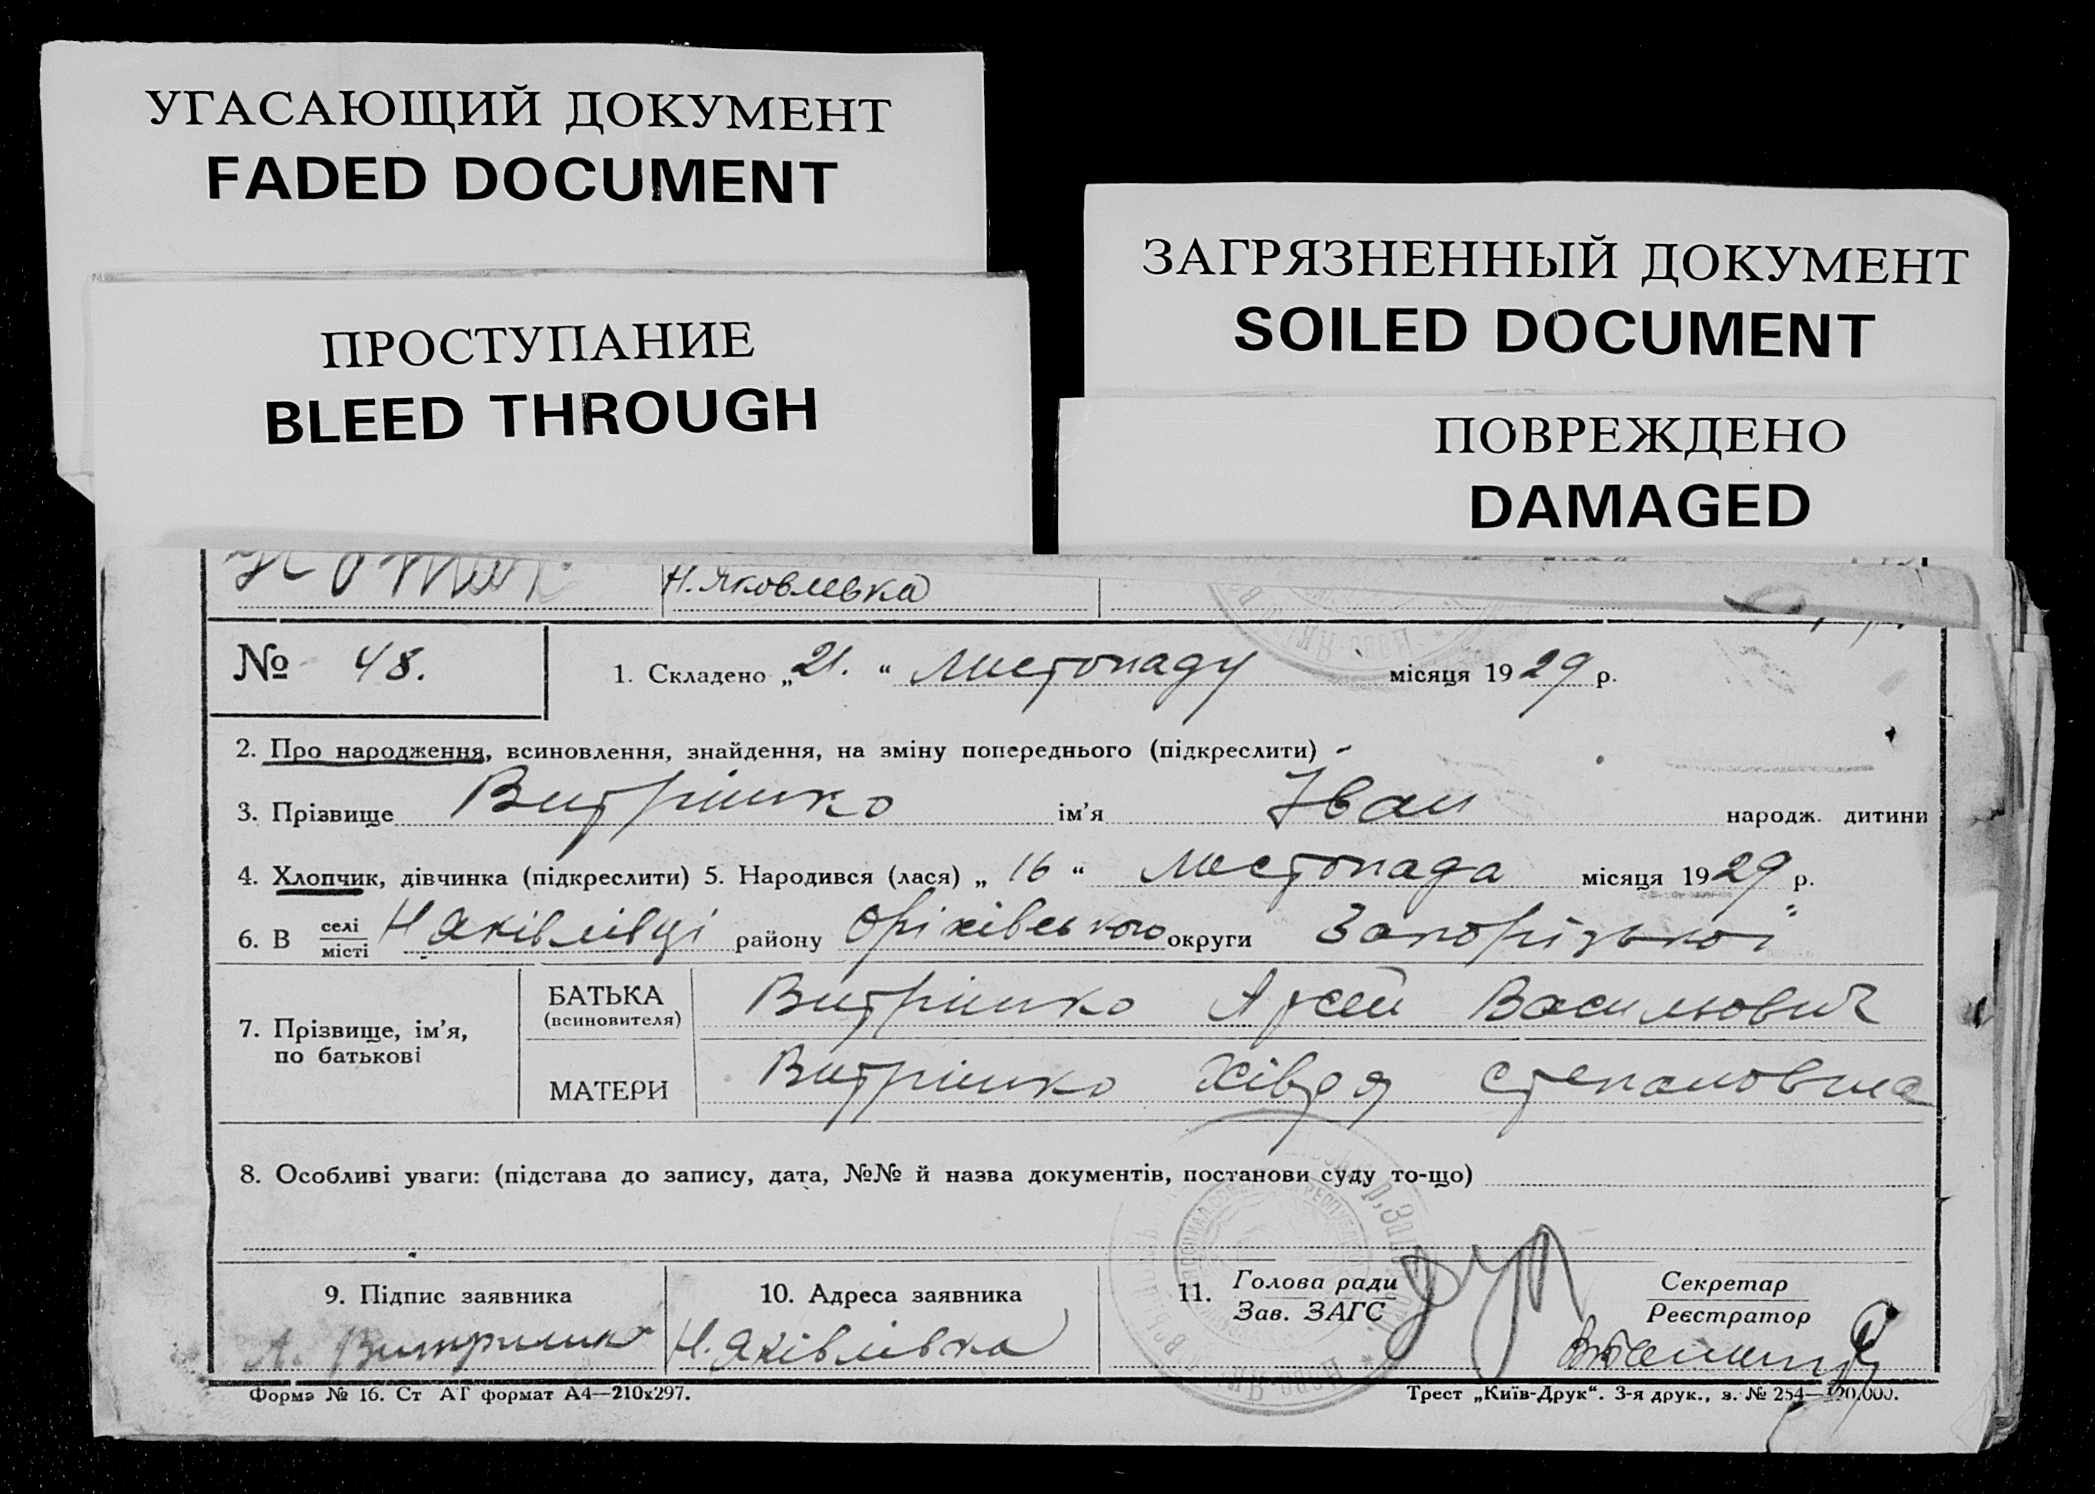 УГАСАЮЩИЙ ДОКУМЕНТ
FADED DOCUMENT
ПРОСТУПАНИЕ
BLEED THROUGH
ЗАГРЯЗНЕННЫЙ ДОКУМЕНТ
SOILED DOCUMENT
ПОВРЕЖДЕНО
DAMAGED
Н. Яковлевка
№ 48. 1. Складено „21.“ листопаду місяця 1929 р.
2. Про народження, всиновлення, знайдення, на зміну попереднього (підкреслити)
3. Прізвище Витрішко ім'я Іван народж. дитини
4. Хлопчик, дівчинка (підкреслити) 5. Народився (лася) „16“ листопада місяця 1929 р.
6. В селі/місті Н Яківлівці району Оріхівського округи Запорізької
7. Прізвище, ім'я, по батькові
БАТЬКА (всиновителя) Витрішко Арсей Васильович
МАТЕРИ Витрішко Хівря Степановна
8. Особливі уваги: (підстава до запису, дата, №№ й назва документів, постанови суду то-що)
9. Підпис заявника 10. Адреса заявника 11. Голова ради / Зав. ЗАГС Секретар / Реєстратор
А. Витришко Н. Яківлівка
Форма № 16. Ст АГ формат А4—210х297. Трест „Київ-Друк“. 3-я друк., з. № 254—120.000.